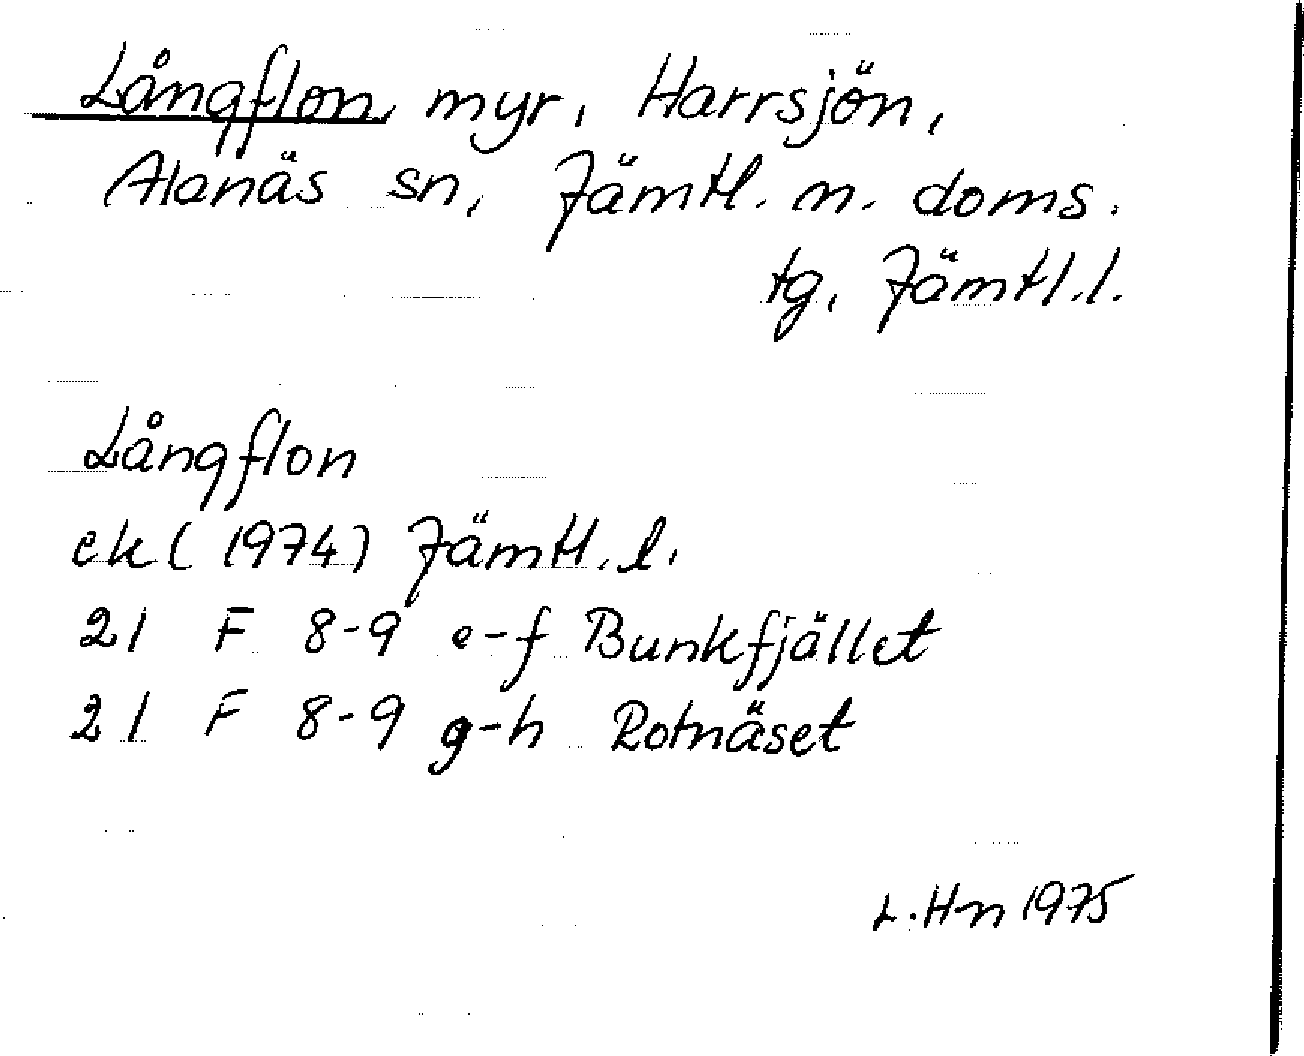 Långflon, myr, Harrsjön,
Alanäs sn, Jämtl. n. doms.
tg, Jämtl.l.
Långflon
ek (1974) Jämtl. l.
21 F 8-9 e-f Bunkfjället
21 F 8-9 g-h Rotnäset
L.Hn 1975